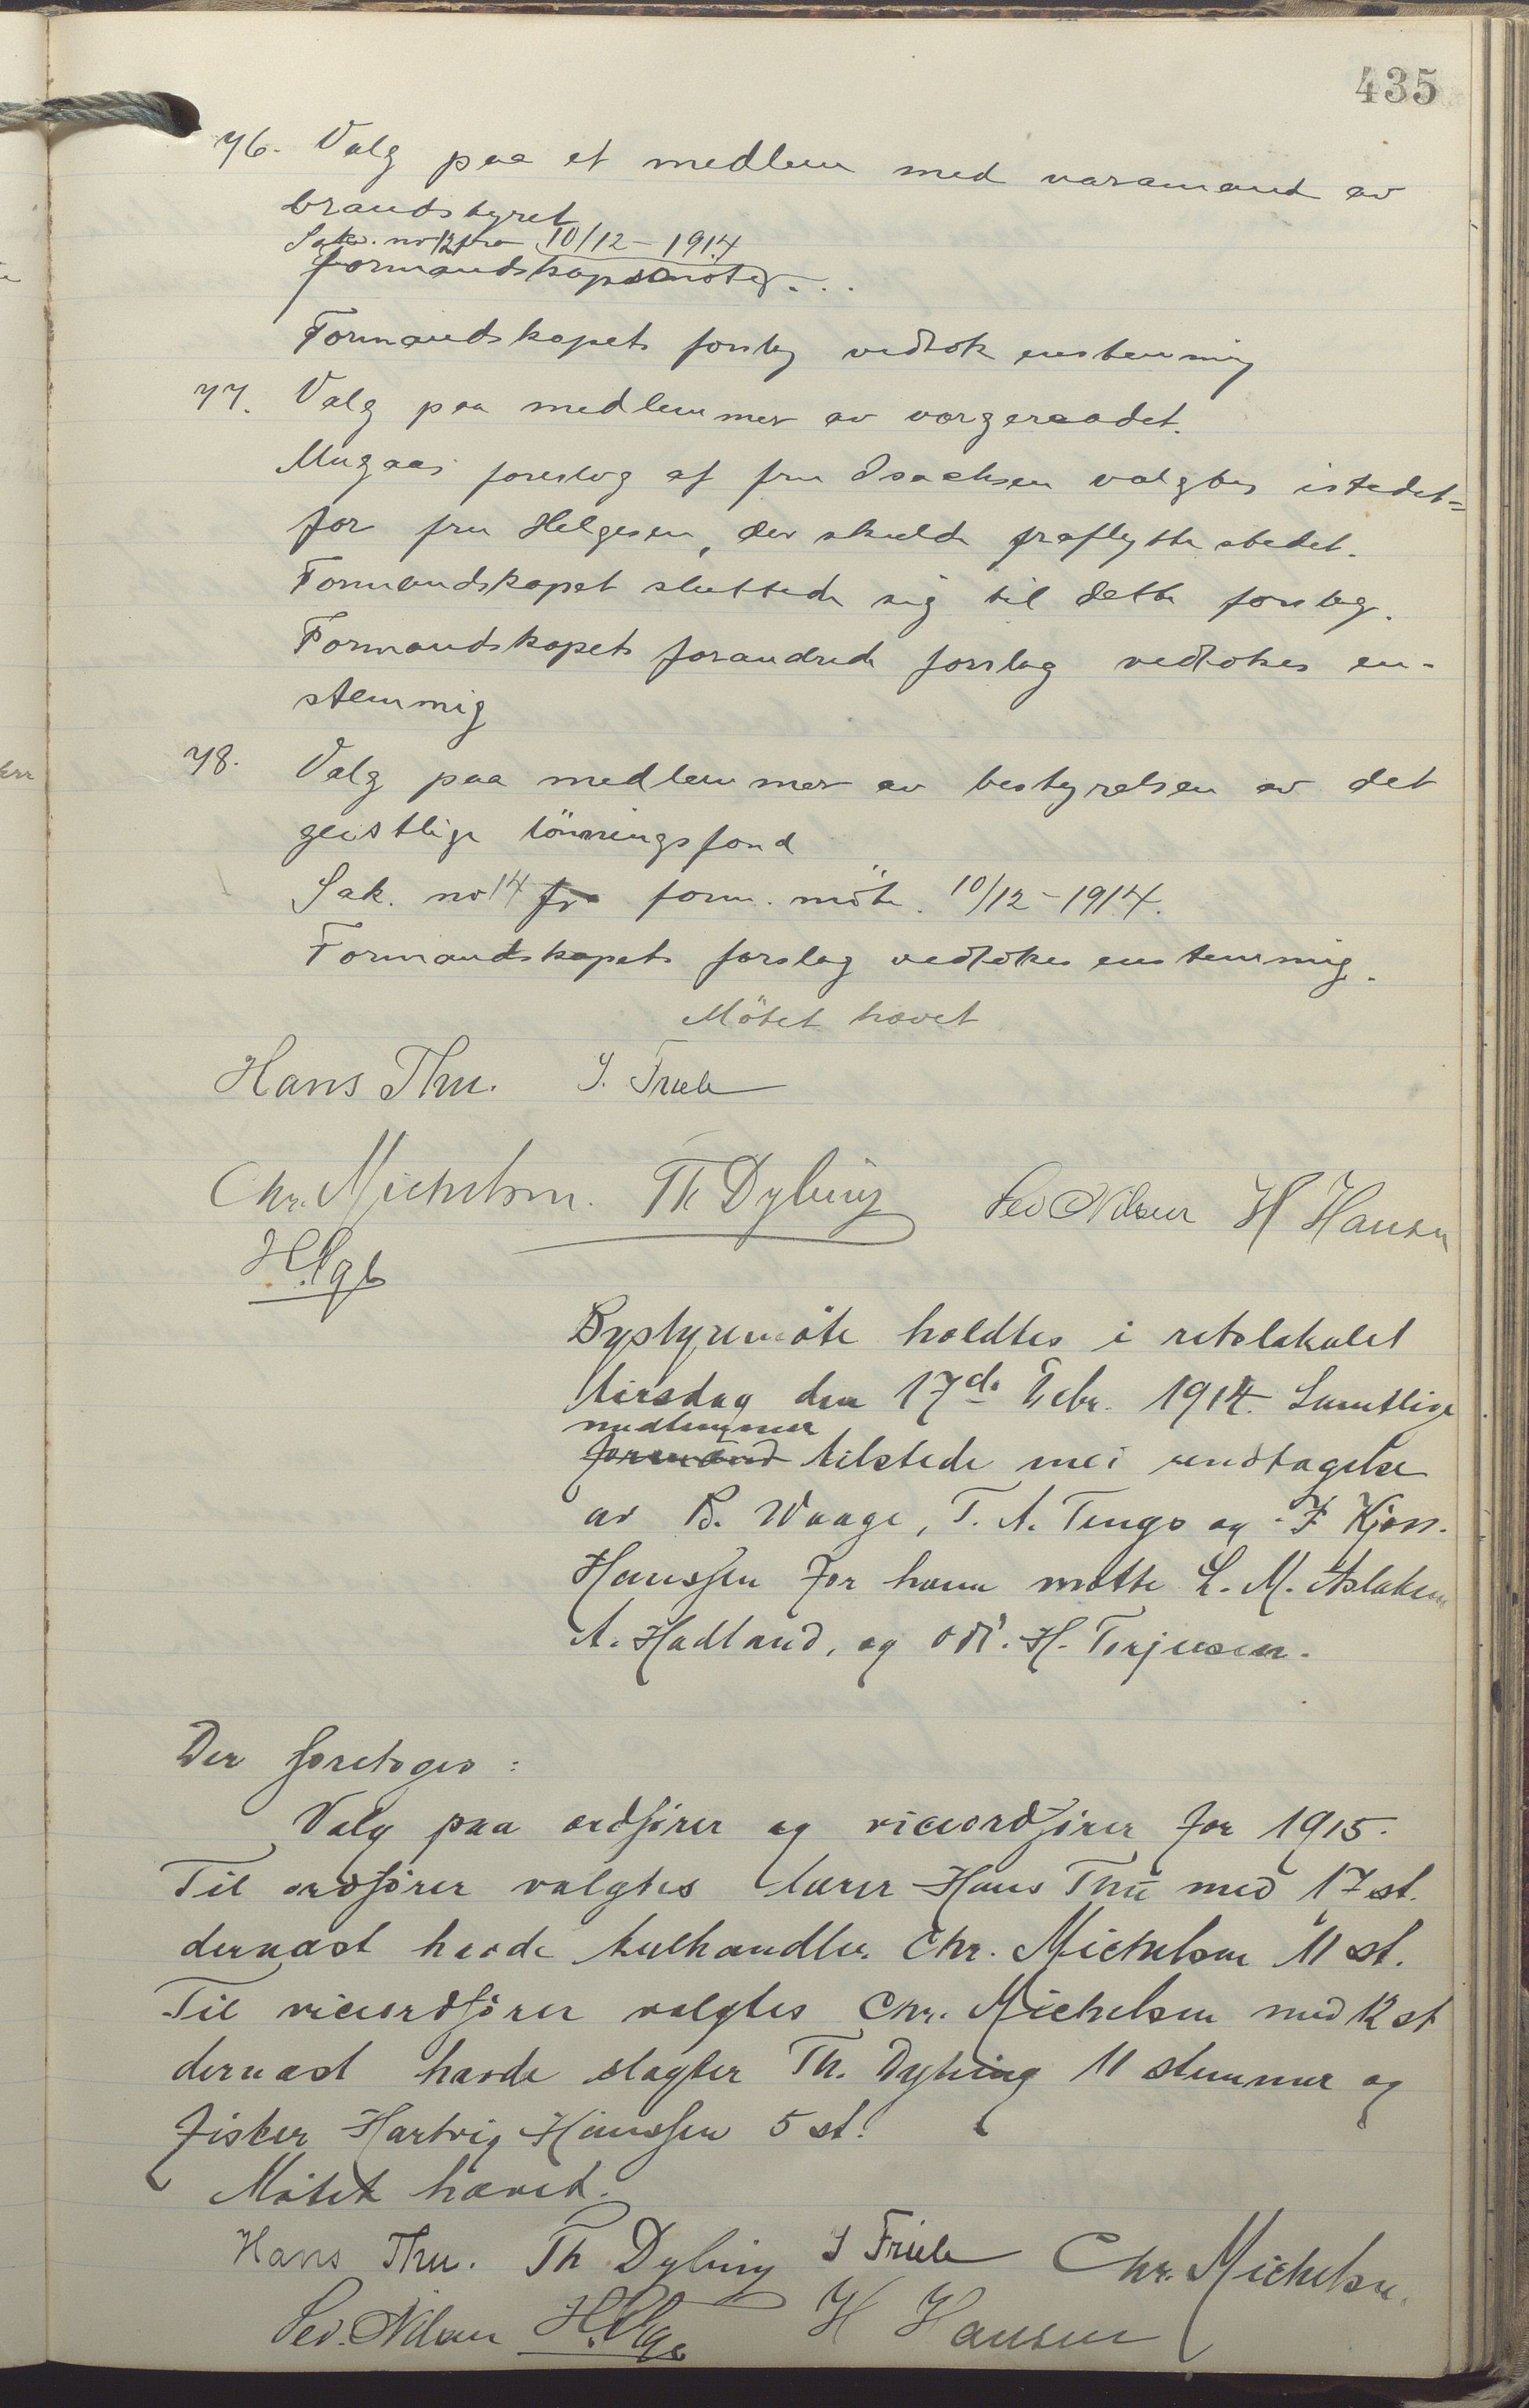 435
76. Valg paa et medlem med varamand av
brandstyret
Sak. no 12 fra 10/12 - 1914
formandskapsmøte. . .
Formandskapets forslag vedtok enstemmig
77. Valg paa medlemmer av vergeraadet.
Mugaas foreslog at fru Isachsen valgtes istedet=
for fru Helgesen, der skulde fraflytte stedet.
Formandskapet sluttede sig til dette forslag.
Formandskapets forandrede forslag vedtokes en-
stemmig
78. Valg paa medlemmer av bestyrelsen av det
geistlige lönningsfond
Sak. no 14 fra form. möte. 10/12 - 1914.
Formandskapets forslag vedtokes enstemmig.
Mötet hævet
Hans Thu. J. Friele
Chr. Michelsen. Th Dybing Sev Nilsen H Hansen
Bystyremöte holdtes i retslokalet
tirsdag den 17de 1914. Samtlige
medlemmer
formænd tilstede med undtagelse
av B. Waage, T. A. Tengs og F Kjøss.
Hanssen for ham møtte L. M. Aslaksen
A. Hadland, og H. Torjusen.
Der foretoges:
Valg paa ordförer og viceordförer for 1915.
Til ordförer valgtes lærer Hans Thu med 17 st.
dernæst havde kulhandler Chr. Michelsen 11 st.
Til viceordförer valgtes Chr. Michelsen med 12 st
dernæst havde slagter Th. Dybing 11 stemmer og
fisker Hartvig Hanssen 5 st.
Mötet hævet.
Hans Thu. Th Dybing J Friele Chr. Michelsen.
Sev. Nilsen H Hansen